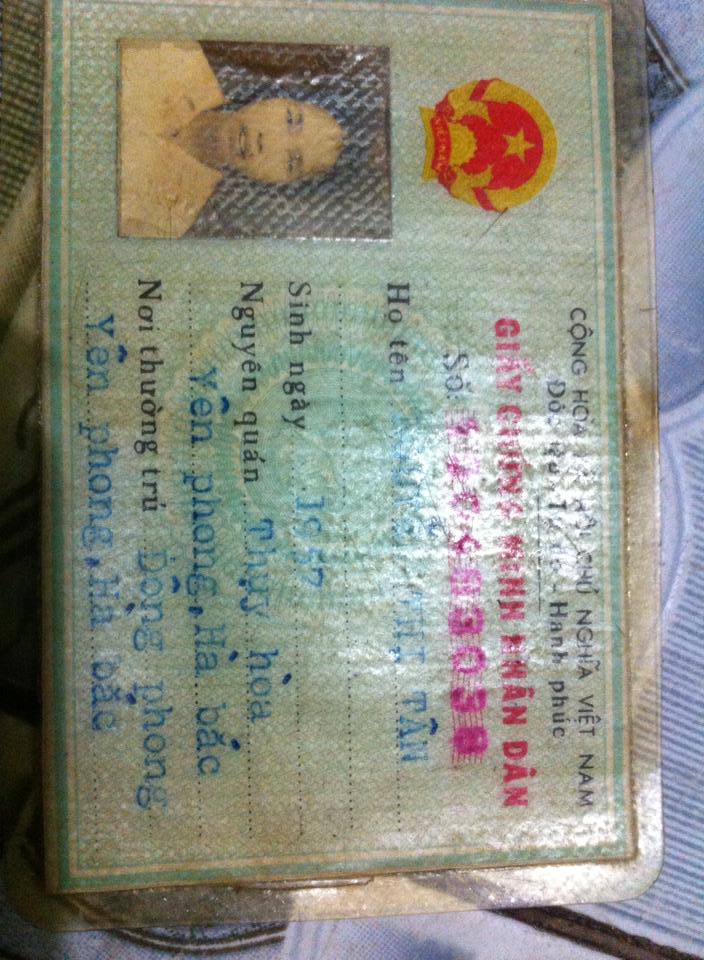 CỘNG HÒA XÃ HỘI CHỦ NGHĨA VIỆT NAM
Độc lập - Tự do - Hạnh phúc
GIẤY CHỨNG MINH NHÂN DÂN
Số:
Họ tên THỊ TÂN
Sinh ngày 1957
Nguyên quán Thụy hòa
Yên phong, Hà bắc
Nơi thường trú Đông phong
Yên phong, Hà bắc